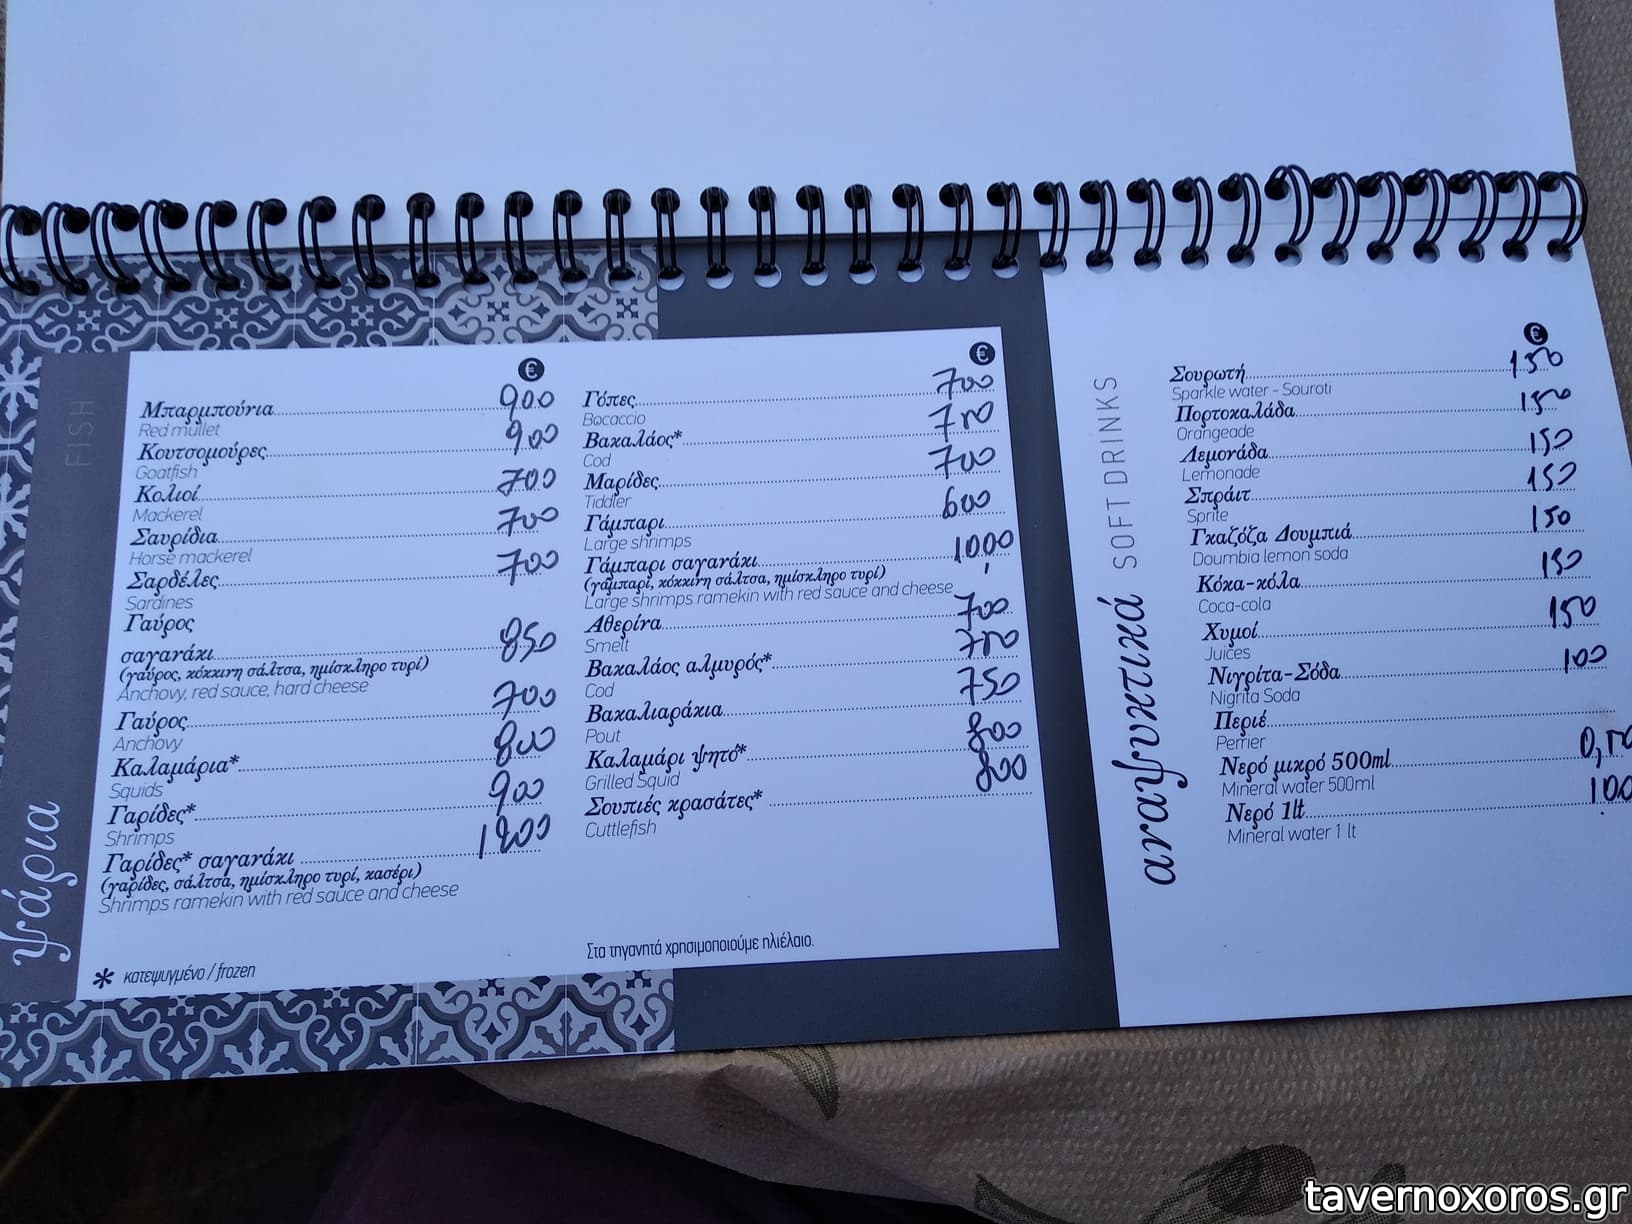 FISH
ψάρια
€
Μπαρμπούνια 900
Red mullet
Κουτσομούρες 900
Goatfish
Κολιοί 700
Mackerel
Σαυρίδια 700
Horse mackerel
Σαρδέλες 700
Sardines
Γαύρος
σαγανάκι 850
(γαύρος, κόκκινη σάλτσα, ημίσκληρο τυρί)
Anchovy, red sauce, hard cheese
Γαύρος 700
Anchovy
Καλαμάρια* 800
Squids
Γαρίδες* 900
Shrimps
Γαρίδες* σαγανάκι
(γαρίδες, σάλτσα, ημίσκληρο τυρί, κασέρι)
Shrimps ramekin with red sauce and cheese
* κατεψυγμένο / frozen
€
Γόπες 700
Bocaccio
Βακαλάος* 750
Cod
Μαρίδες 700
Tiddler
Γάμπαρι 600
Large shrimps
Γάμπαρι σαγανάκι 1000
(γάμπαρι, κόκκινη σάλτσα, ημίσκληρο τυρί)
Large shrimps ramekin with red sauce and cheese
Αθερίνα 700
Smelt
Βακαλάος αλμυρός* 750
Cod
Βακαλιαράκια 750
Pout
Καλαμάρι ψητό* 800
Grilled Squid
Σουπιές κρασάτες* 800
Cuttlefish
Στα τηγανητά χρησιμοποιούμε ηλιέλαιο.
αναψυκτικά SOFT DRINKS
€
Σουρωτή 150
Sparkle water - Souroti
Πορτοκαλάδα 150
Orangeade
Λεμονάδα 150
Lemonade
Σπράιτ 150
Sprite
Γκαζόζα Δουμπιά 150
Doumbia lemon soda
Κόκα-κόλα 150
Coca-cola
Χυμοί 150
Juices
Νιγρίτα-Σόδα 100
Nigrita Soda
Περιέ
Perrier
Νερό μικρό 500ml 0,50
Mineral water 500ml
Νερό 1lt 100
Mineral water 1 lt
tavernoxoros.gr